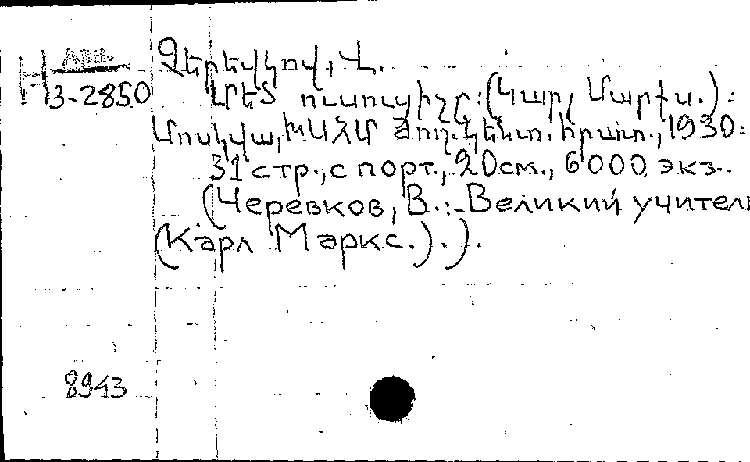 Арм.
Н 3-2850
Չերեվկով, Վ.
Մեծ ուսուցիչը: (Կարլ Մարքս.):
Մոսկվա, ԽՍՀՄ Ժող. կենտ. հրատ., 1930:
31 стр., с порт., 20см., 6000 экз.
(Черевков, В.:- Великий учитель
(Карл Маркс.).).
8943